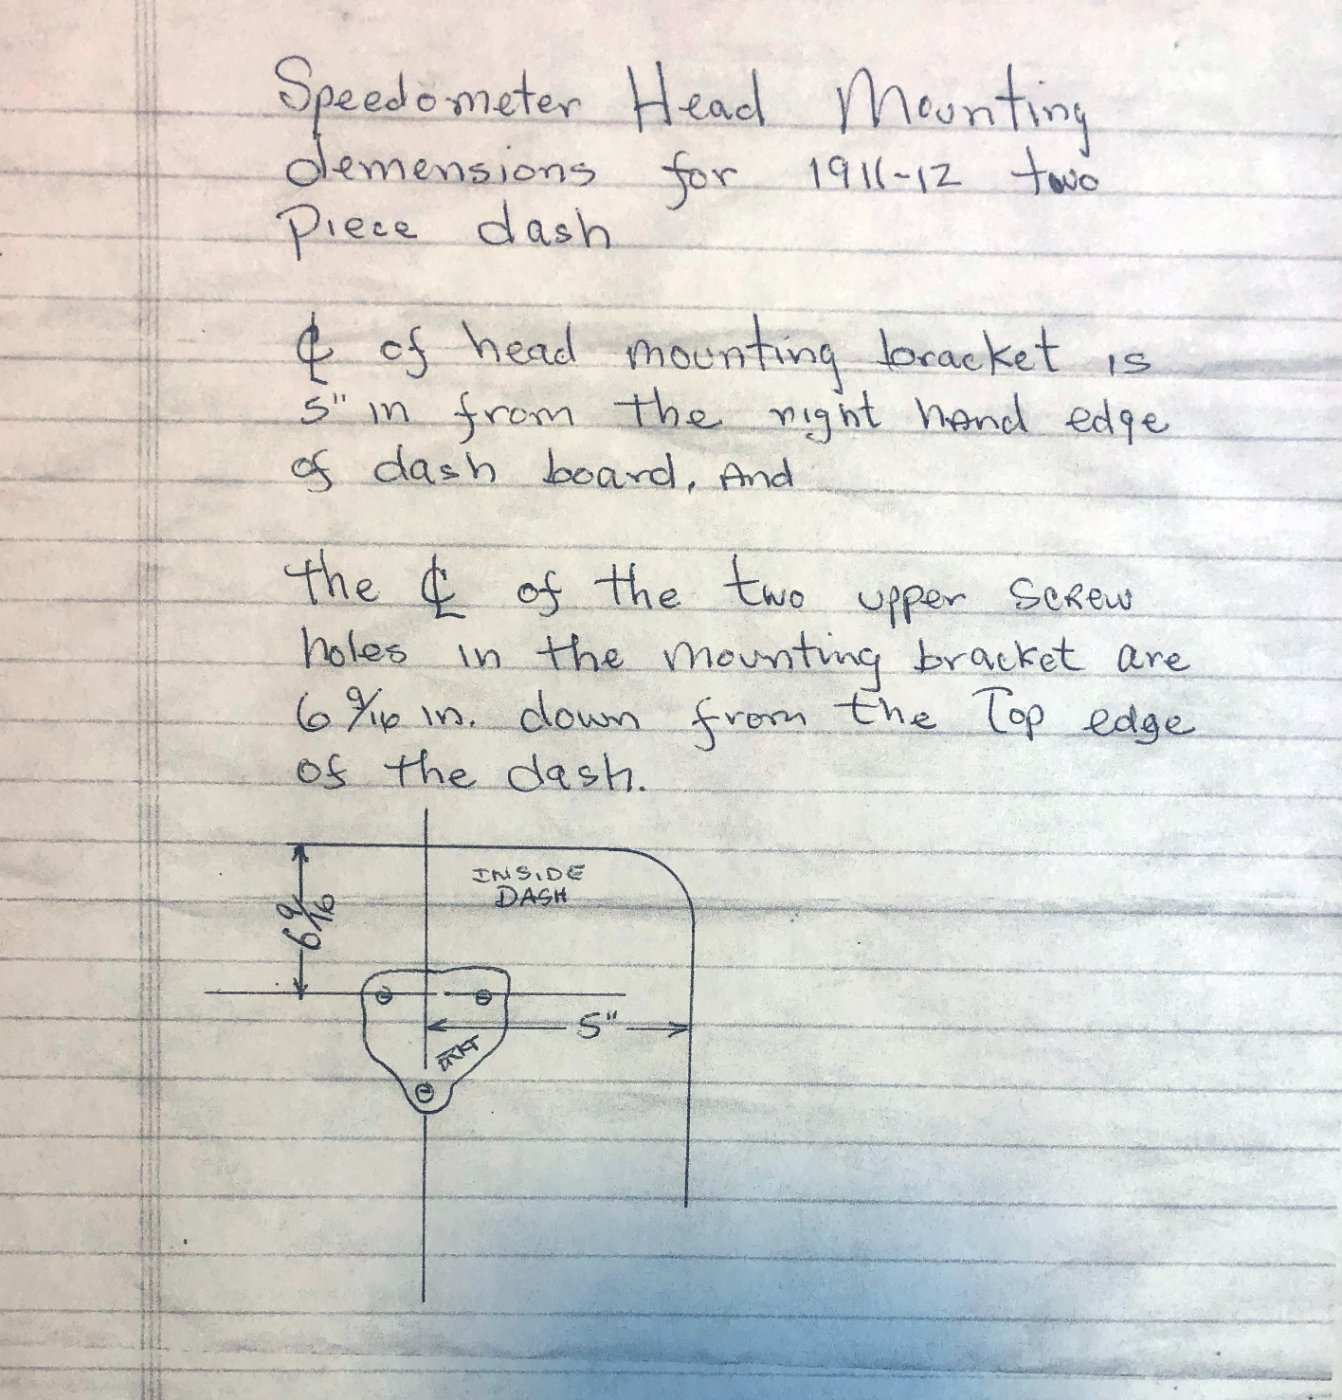 Speedometer Head Mounting
demensions for 1911-12 two
Piece dash
℄ of head mounting bracket is
5" in from the right hand edge
of dash board. And
the ℄ of the two upper screw
holes in the mounting bracket are
6 9/16 in. down from the Top edge
of the dash.
INSIDE
DASH
6 9/16
5"
BRKT